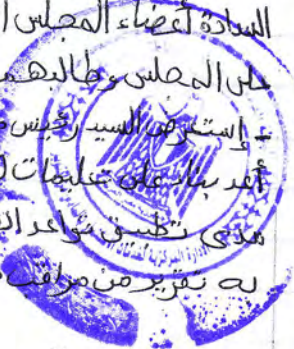 السادة أعضاء المجلس ا
على المجلس وطالبهم
- إستعرض السيد رئيس م
أعد بناء على تعليمات ا
مدى تطبيق قواعد ال
به تقرير من مراقب